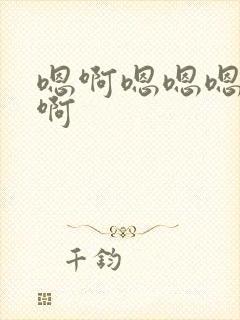 嗯啊嗯嗯嗯
啊
千鈞